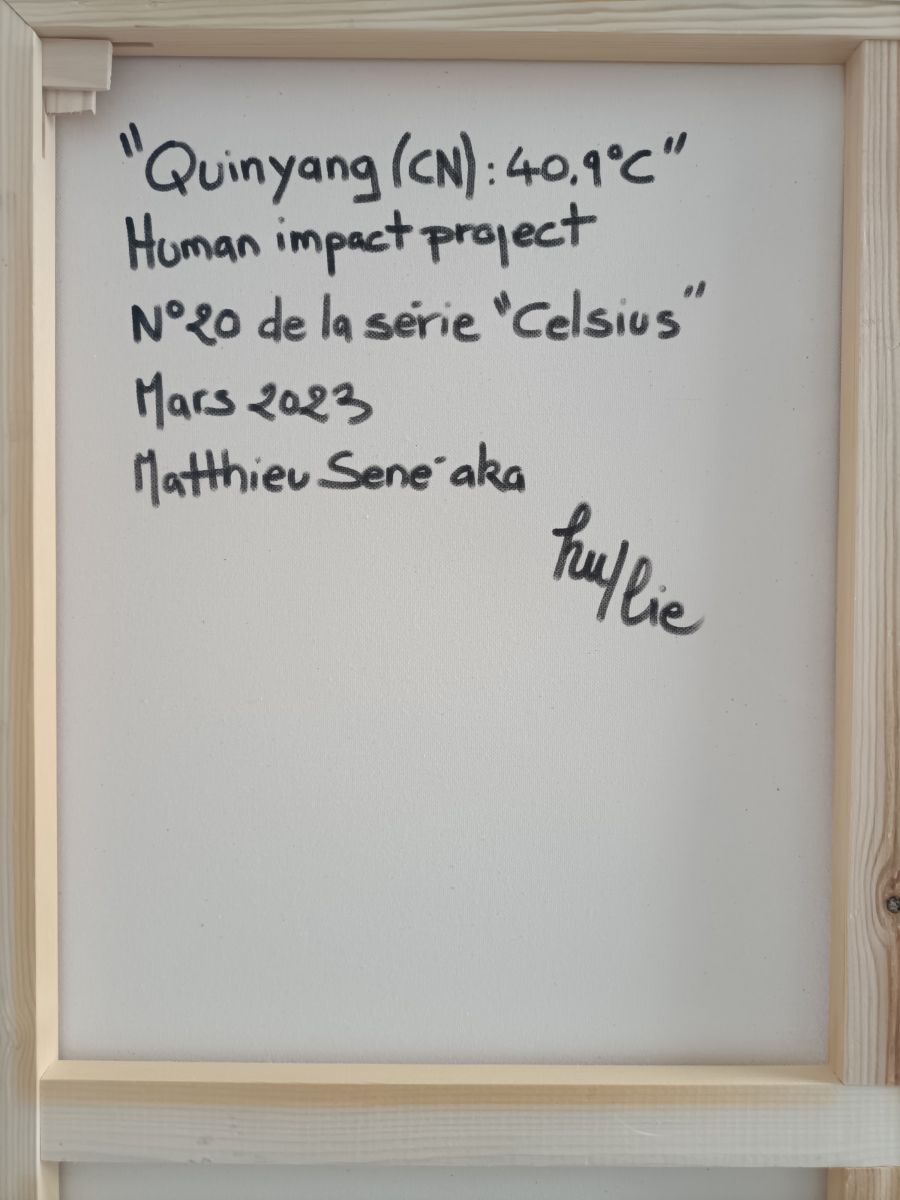 "Quinyang (CN) : 40,9°C"
Human impact project
N°20 de la série "Celsius"
Mars 2023
Matthieu Sené aka
hu/lie